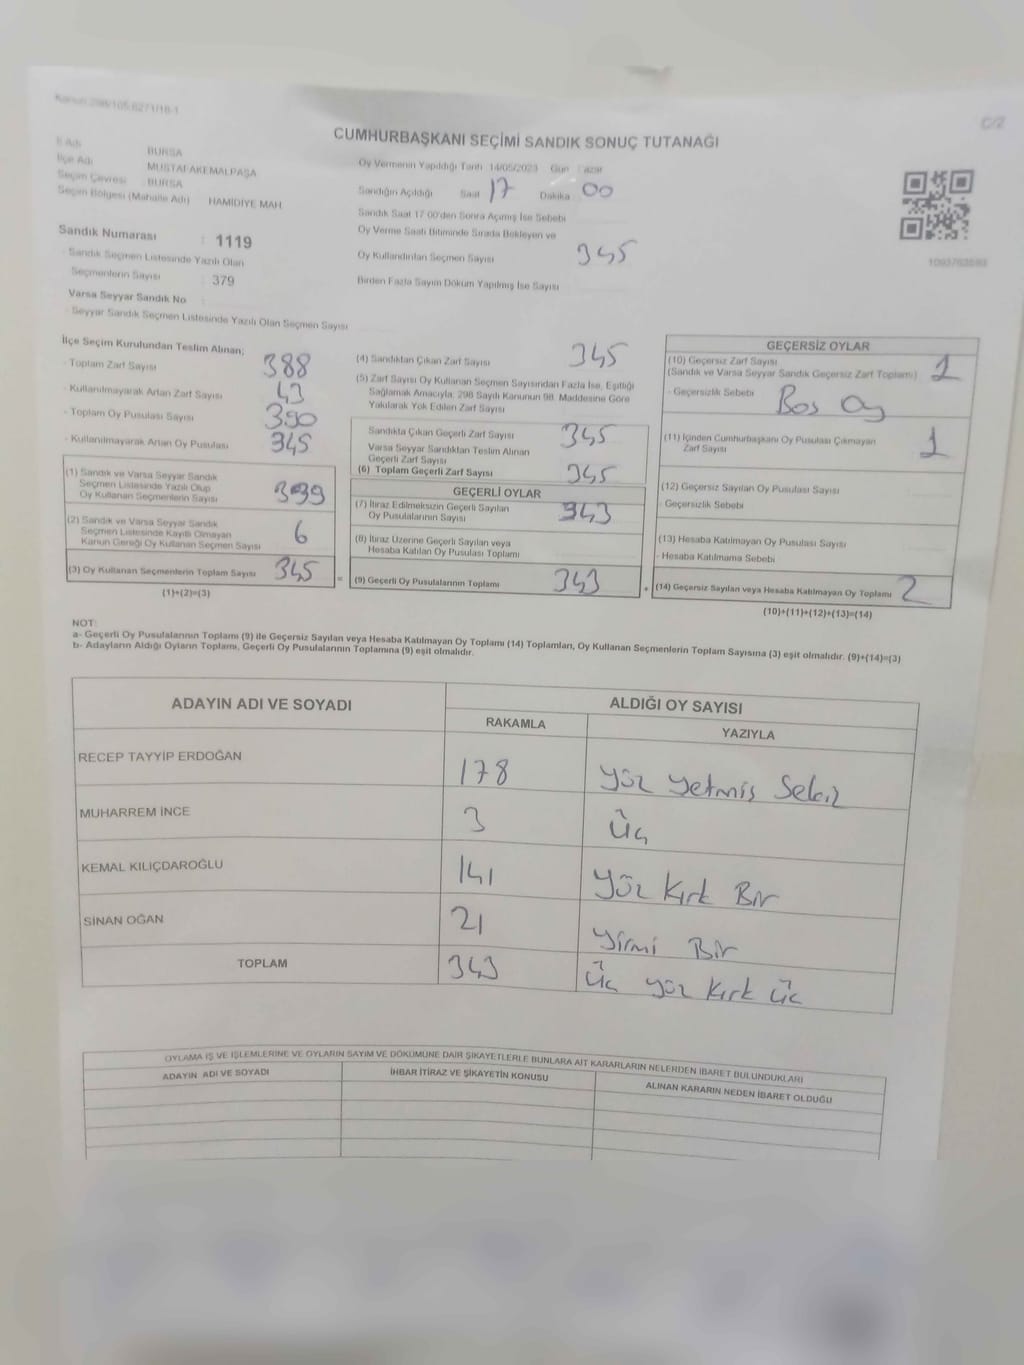 CUMHURBAŞKANI SEÇİMİ SANDIK SONUÇ TUTANAĞI
C/2
İl Adı BURSA
İlçe Adı MUSTAFAKEMALPAŞA
Seçim Çevresi BURSA
Seçim Bölgesi (Mahalle Adı) HAMİDİYE MAH.
Sandık Numarası : 1119
- Sandık Seçmen Listesinde Yazılı Olan
Seçmenlerin Sayısı : 379
Varsa Seyyar Sandık No :
- Seyyar Sandık Seçmen Listesinde Yazılı Olan Seçmen Sayısı
Oy Vermenin Yapıldığı Tarih 14/05/2023 Gün
Sandığın Açıldığı Saat 17 Dakika 00
Sandık Saat 17:00'den Sonra Açılmış İse Sebebi
Oy Verme Saati Bitiminde Sırada Bekleyen ve
Oy Kullandırılan Seçmen Sayısı 345
Birden Fazla Sayım Döküm Yapılmış İse Sayısı
İlçe Seçim Kurulundan Teslim Alınan;
- Toplam Zarf Sayısı 388
- Kullanılmayarak Artan Zarf Sayısı 43
- Toplam Oy Pusulası Sayısı 390
- Kullanılmayarak Artan Oy Pusulası 345
(1) Sandık ve Varsa Seyyar Sandık
Seçmen Listesinde Yazılı Olup
Oy Kullanan Seçmenlerin Sayısı
(2) Sandık ve Varsa Seyyar Sandık
Seçmen Listesinde Kayıtlı Olmayan
Kanun Gereği Oy Kullanan Seçmen Sayısı 6
(3) Oy Kullanan Seçmenlerin Toplam Sayısı 345
(1)+(2)=(3)
(4) Sandıktan Çıkan Zarf Sayısı 345
(5) Zarf Sayısı Oy Kullanan Seçmen Sayısından Fazla İse, Eşitliği
Sağlamak Amacıyla, 298 Sayılı Kanunun 98. Maddesine Göre
Yakılarak Yok Edilen Zarf Sayısı
Sandıkta Çıkan Geçerli Zarf Sayısı 345
Varsa Seyyar Sandıktan Teslim Alınan
Geçerli Zarf Sayısı
(6) Toplam Geçerli Zarf Sayısı 345
GEÇERLİ OYLAR
(7) İtiraz Edilmeksizin Geçerli Sayılan
Oy Pusulalarının Sayısı 343
(8) İtiraz Üzerine Geçerli Sayılan veya
Hesaba Katılan Oy Pusulası Toplamı
= (9) Geçerli Oy Pusulalarının Toplamı 343
GEÇERSİZ OYLAR
(10) Geçersiz Zarf Sayısı
(Sandık ve Varsa Seyyar Sandık Geçersiz Zarf Toplamı) 1
- Geçersizlik Sebebi Boş Oy
(11) İçinden Cumhurbaşkanı Oy Pusulası Çıkmayan
Zarf Sayısı 1
(12) Geçersiz Sayılan Oy Pusulası Sayısı
- Geçersizlik Sebebi
(13) Hesaba Katılmayan Oy Pusulası Sayısı
- Hesaba Katılmama Sebebi
+ (14) Geçersiz Sayılan veya Hesaba Katılmayan Oy Toplamı 2
(10)+(11)+(12)+(13)=(14)
NOT:
a- Geçerli Oy Pusulalarının Toplamı (9) ile Geçersiz Sayılan veya Hesaba Katılmayan Oy Toplamı (14) Toplamları, Oy Kullanan Seçmenlerin Toplam Sayısına (3) eşit olmalıdır. (9)+(14)=(3)
b- Adayların Aldığı Oyların Toplamı, Geçerli Oy Pusulalarının Toplamına (9) eşit olmalıdır.
ADAYIN ADI VE SOYADI ALDIĞI OY SAYISI
RAKAMLA YAZIYLA
RECEP TAYYİP ERDOĞAN 178 Yüz Yetmiş Sekiz
MUHARREM İNCE 3 Üç
KEMAL KILIÇDAROĞLU 141 Yüz Kırk Bir
SİNAN OĞAN 21 Yirmi Bir
TOPLAM 343 Üç yüz Kırk üç
OYLAMA İŞ VE İŞLEMLERİNE VE OYLARIN SAYIM VE DÖKÜMÜNE DAİR ŞİKAYETLERLE BUNLARA AİT KARARLARIN NELERDEN İBARET BULUNDUKLARI
ADAYIN ADI VE SOYADI İHBAR İTİRAZ VE ŞİKAYETİN KONUSU ALINAN KARARIN NEDEN İBARET OLDUĞU